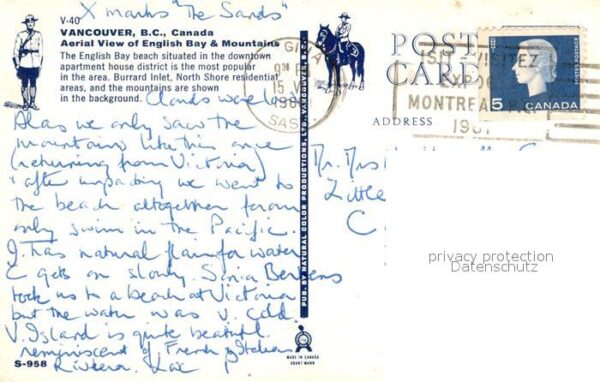 X marks "The Sands"
V-40
VANCOUVER, B.C., Canada
Aerial View of English Bay & Mountains
The English Bay beach situated in the downtown
apartment house district is the most popular
in the area. Burrard Inlet, North Shore residential
areas, and the mountains are shown
in the background.
Clouds were low
Alas we only saw the
mountains like this once
(returning from Victoria)
after unpacking we went to
the beach altogether for our
only swim in the Pacific.
J. has natural flair for water
C gets on slowly.
took us to a beach at Victoria
but the water was v. cold.
V. Island is quite beautiful
reminiscent of French & Italian
Riviera.
S-958
PUB. BY NATURAL COLOR PRODUCTIONS, LTD., VANCOUVER, B.C.
MADE IN CANADA
POST
CARD
ADDRESS
15
SASK
VISITEZ
EXPO
MONTREAL
1967
5
CANADA
POSTES POSTAGE
Mr. Mrs
Little
C
privacy protection
Datenschutz